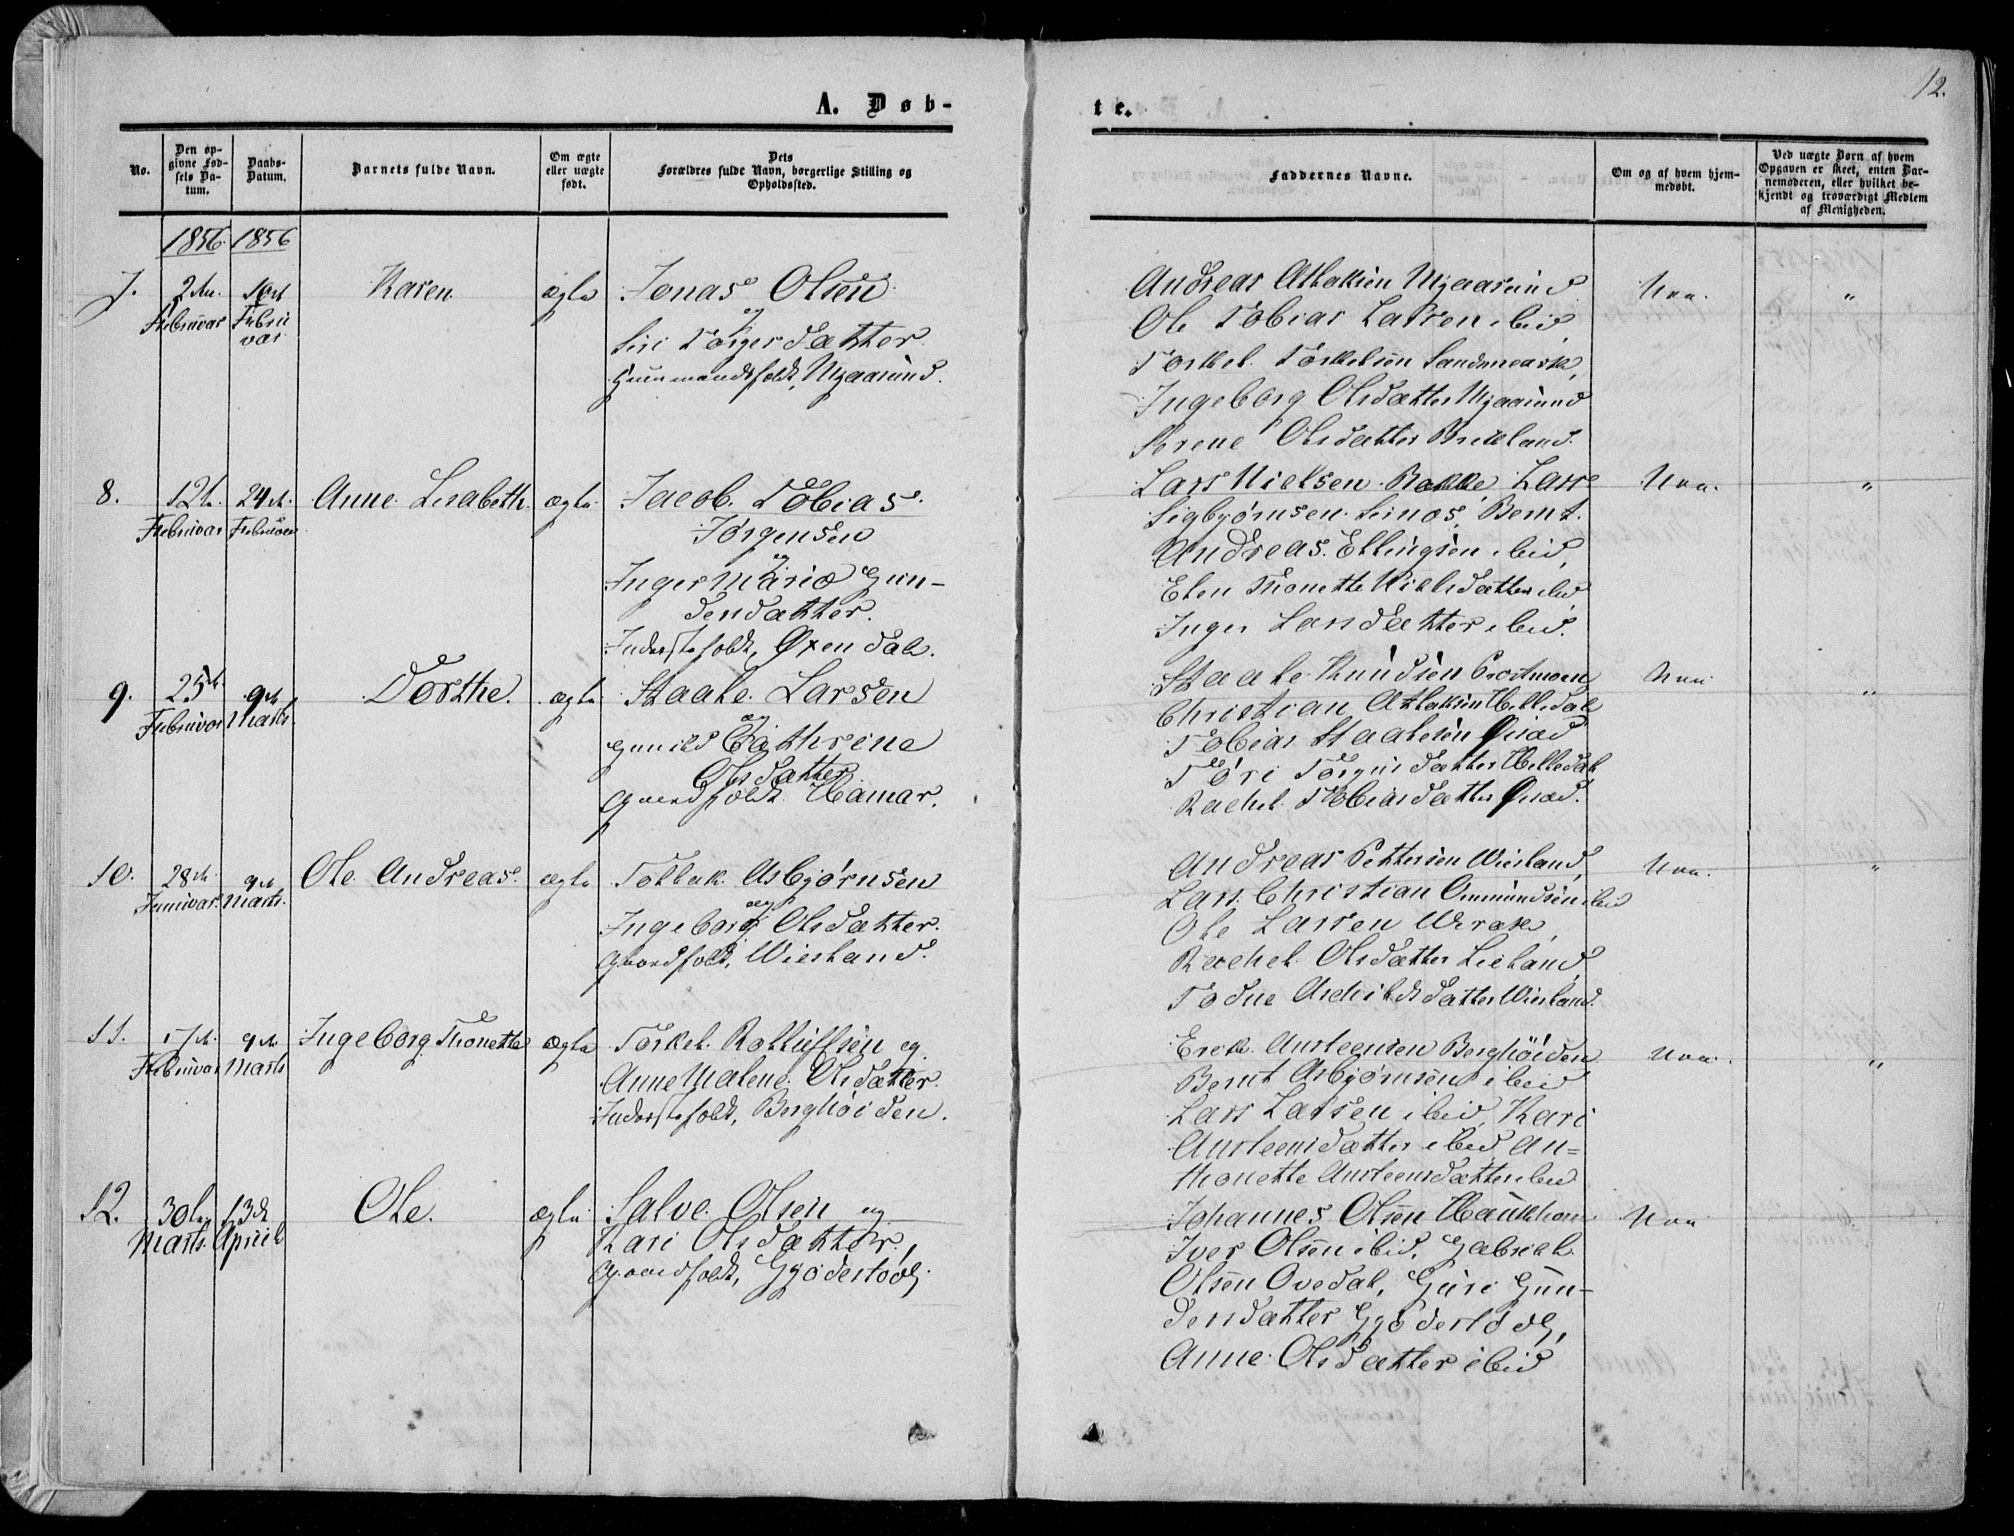 12.
A. Døb-
te.
No.
Den op-
givne Fød-
sels Da-
tum.
Daabs-
Datum.
Barnets fulde Navn.
Om ægte
eller uægte
født.
Dets
Forældres fulde Navn, borgerlige Stilling og
Opholdssted.
Faddernes Navne.
Om og af hvem hjem-
medøbt.
Ved uægte Børn af hvem
Opgaven er skeet, enten Bar-
nemoderen, eller hvilket be-
kjendt og troværdigt Medlem
af Menigheden.
1856. 1856
7.
2den
Februar
10d
Febru
var
Karen
ægte
Jonas Olsen
og
Siri Torgersdatter
Huusmandsfolk, Mjaasund.
Andreas Atlaksen Mjaasund
Ole Tobias Larsen ibid
Torkel Torkelsen Sandsmark,
Ingeborg Olsdatter Mjaasund
Serene Olsdatter Breiland.
Nei.
"
8.
12t.
Februar
24d.
Februar
Anne Lisabeth
ægte
Jacob Tobias
Jørgensen
og
Inger Marie Gun-
densdatter.
Inderstefolk, Øxendal.
Lars Nielsen Bakke Lars
Sigbjørnsen Sirnes, Bernt
Andreas Ellingsen ibid,
Elen Thonette Nielsdatter ibid
Inger Larsdatter ibid.
Nei.
"
9.
25d.
Februar
9d
Marts
Dorthe.
ægte
Staale Larsen
og
Gunild Cathrine
Olsdatter
Gaardfolk Hamar.
Staale Knudsen
Christian Atlaksen Helledal
Tobias Staalesen Qviad
Tori Torgersdatter Helledal
Rachel Tobiasdatter Qviad.
Nei.
"
10.
28d.
Januar
9d
Marts.
Ole Andreas.
ægte
Tollak Asbjørnsen
og
Ingeborg Olsdatter.
Gaardfolk, Wiesland.
Andreas Pettersen Wiesland,
Lars Christian Ommundsen ibid
Ole Larsen Wirak,
Rachel Olsdatter Lieland,
Todne Aschildsdatter Wiesland.
Nei.
"
11.
17d.
Februar
9d
Marts
Ingeborg Thonette
ægte
Torkel Rolliefsen og
Anne Malene Olsdatter.
Inderstefolk, Berghøiden.
Erik Austeensen Berghöiden
Bernt Asbjørnsen ibid
Lars Larsen ibid, Kari
Austeensdatter ibid An=
thonette Austeensdatter ibid
Nei.
"
12.
30te
Marts
13d
April
Ole.
ægte
Salve Olsen og
Kari Olsdatter,
Gaardfolk, Gyderstoel
Johannes Olsen Haukhom
Iver Olsen ibid, Gabriel
Olsen Ovedal, Guri Gun-
densdatter Gyderstoel,
Anne Olsdatter ibid
Nei